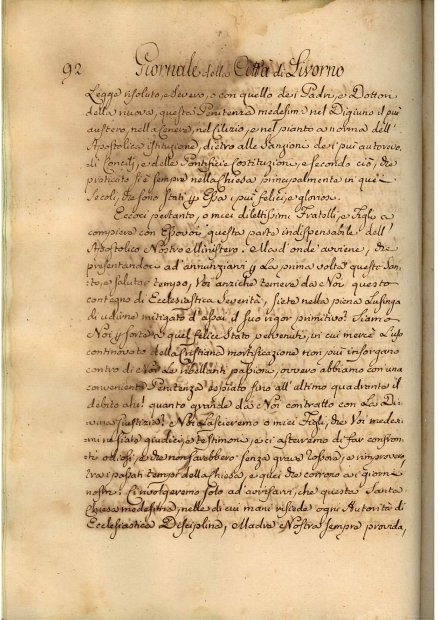 92 Giornale della Città di Livorno
Legge risoluto, e severo, o con quello de i Padri, e Dottori
della nuova, questa Penitenza medesima nel Digiuno il più
austero, nella Cenere, nel Cilizio, e nel pianto a norma dell'
Apostolica istituzione, dietro alle Sanzioni de i più autorevo-
li Concilj, e delle Pontificie Costituzioni, e secondo ciò, che
praticato si è sempre nella Chiesa principalmente in que'
Secoli, che sono stati p Essa i più felici, e gloriosi.
Eccoci pertanto, o miei dilettissimi Fratelli, e Figli a
compiere con Esso voi questa parte indispensabile dell'
Apostolico Nostro Ministero. Ma d'onde avviene, che
presentandoci ad annunziarvi p La prima volta questo San-
to, e salutar tempo, Voi anziche temere da Noi questo
contegno di Ecclesiastica Severità, siete nella piena Lusinga
di udirne mitigato d'assai il suo rigor primitivo? Siamo
Noi p sorte a quel felice Stato pervenuti, in cui mercè L'uso
continovato della Cristiana mortificazione non più insorgano
contro di Noi Le ribellanti passioni, ovvero abbiamo con una
conveniente Penitenza fino all'altimo quadrante il
debito ahi! quanto grande da Noi contratto con La Di-
vina Giustizia? Noi Lasceremo o miei Figli, che Voi medesi-
mi ne siate giudici, e testimoni, e ci asterremo di far confron-
ti odiosi, e che non sarebbero senza grave rossore, e rimprovero
tra i passati tempi della Chiesa, e quei che corrono a i giorni
nostri. Ci volgeremo solo ad avvisarvi, che questa Santa
Chiesa medesima, nelle di cui mani risiede ogni Autorità di
Ecclesiastica Disciplina, Madre Nostra sempre provida,